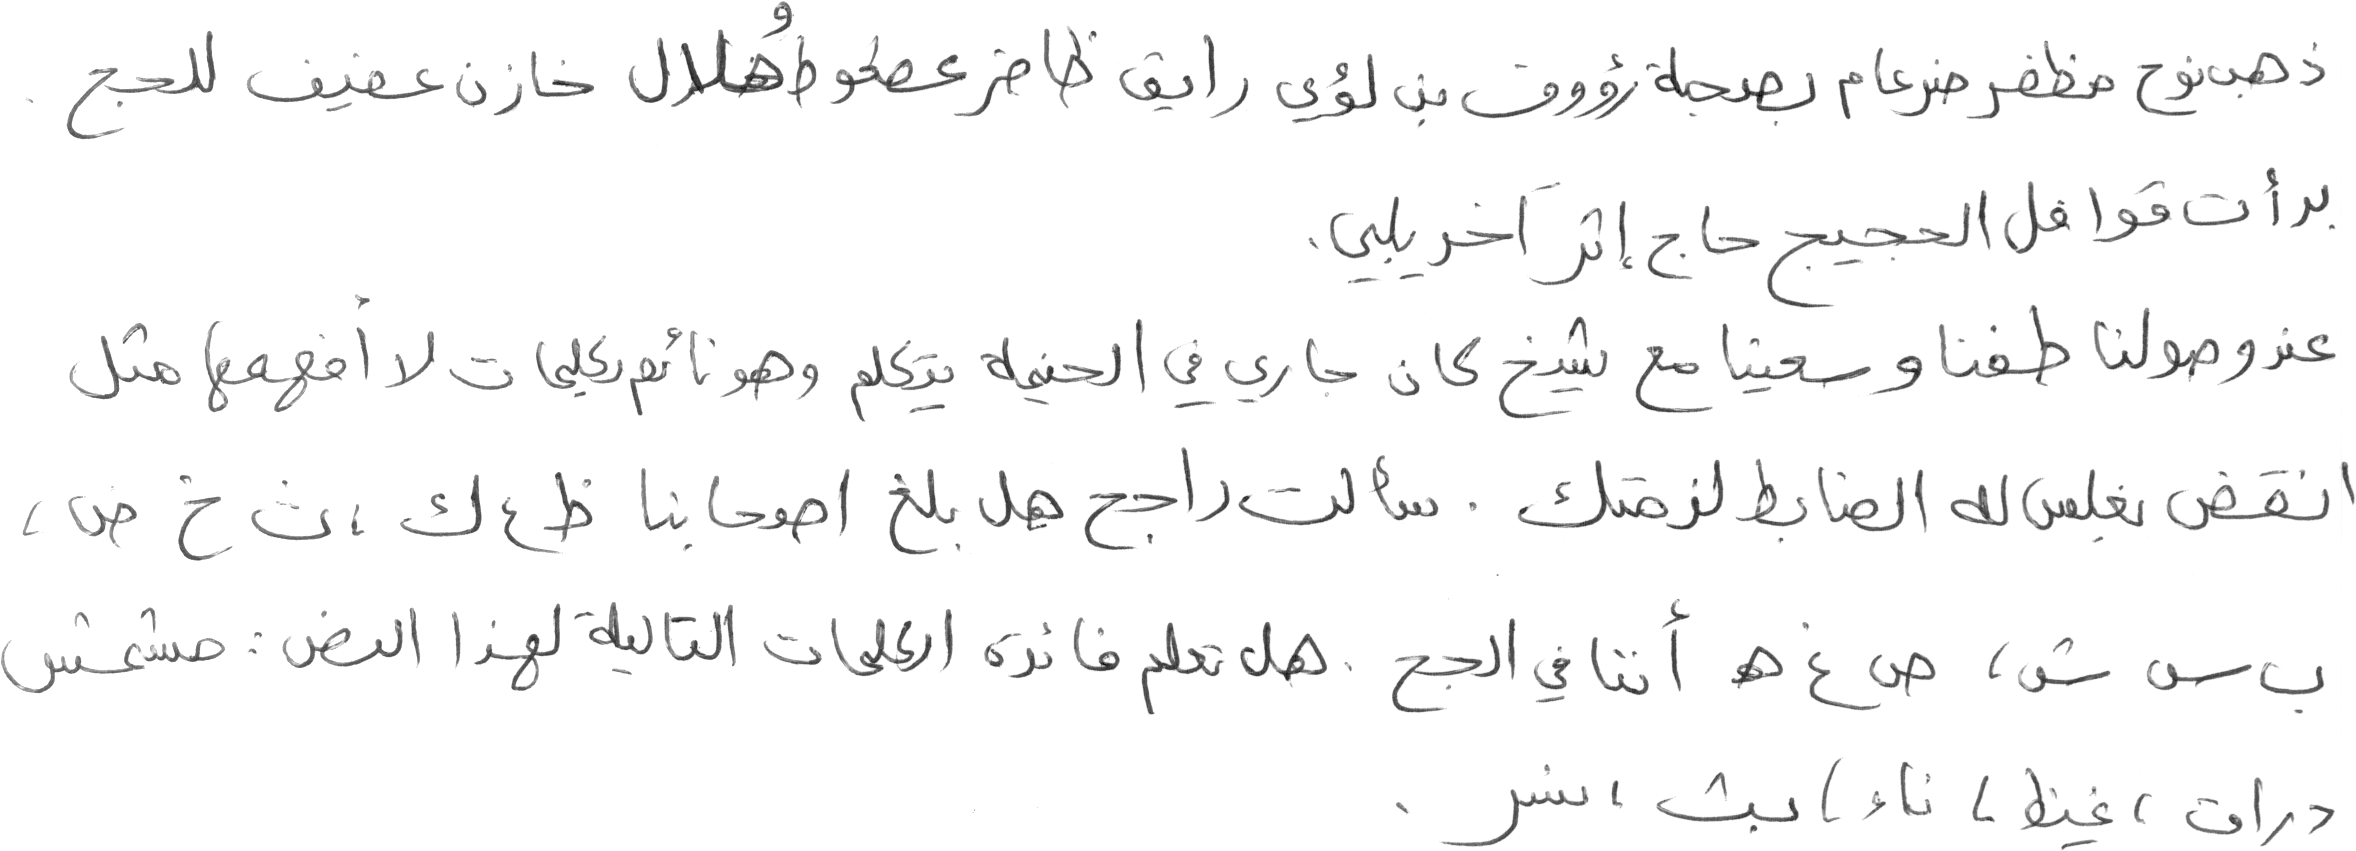 ذهب نوح مظفر ضرغام بصحبة رؤوف بن لؤي رايق ظافر عطعوط هُلال خازن عفيف للحج .
بدأت قوافل الحجيج حاج إثر آخر يلبي .
عند وصولنا طفنا وسعينا مع شيخ كان جاري في الخيمة يتكلم وهو نائم بكلمات لا أفهمها مثل
انقض بغلس له الضابط لزمتك . سألت راجح هل بلغ اصوحابنا ظ ع ك ، ث خ ض ،
ب س ش ، ص غ ه أننا في الحج . هل تعلم فائدة الكلمات التالية لهذا النص : مشمش
دراق ، غيظ ، ناء ، ببث ، بنس .